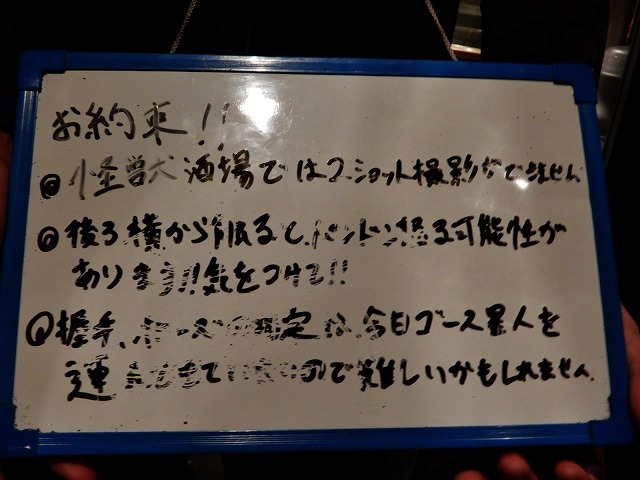 お約束!!
◎怪獣酒場では2ショット撮影ができません
◎後ろ横から撮ると、る可能性が
あります!!気をつけて!!
◎握手、は、今日ゴース星人を
連ので難しいかもしれません。